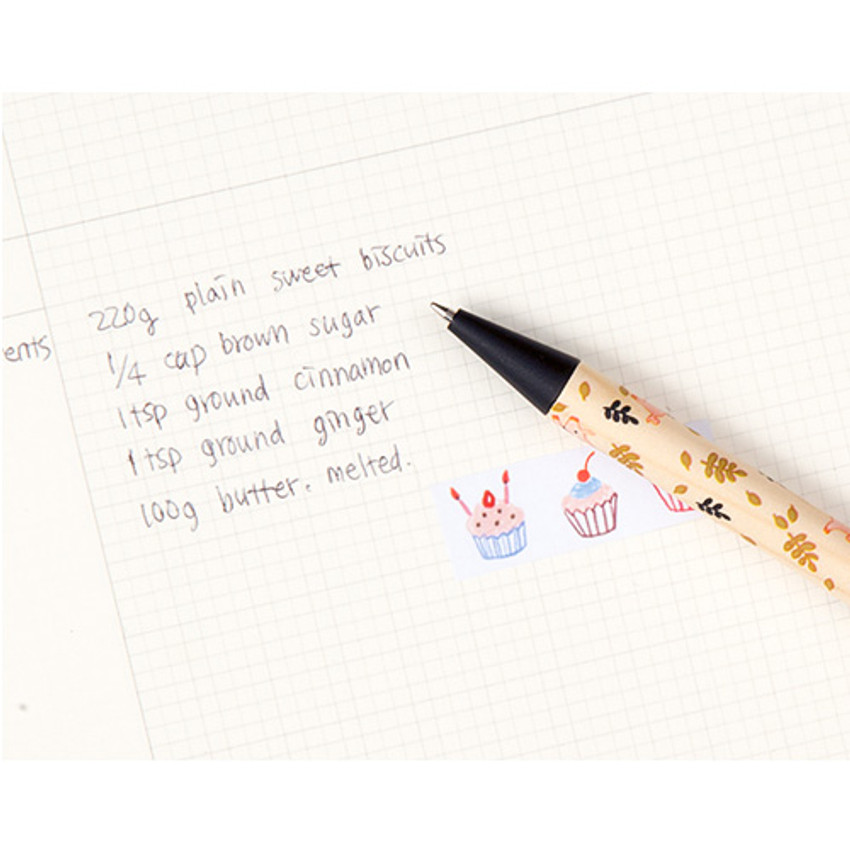 220g plain sweet biscuits
1/4 cup brown sugar
ents
1tsp ground cinnamon
1tsp ground ginger
100g butter. melted.